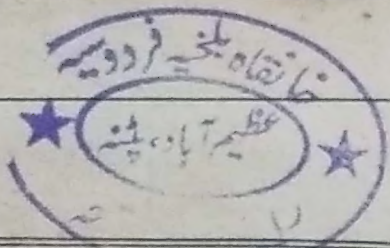 خانقاہ بلخیہ فردوسیہ
عظیم آباد، پٹنہ